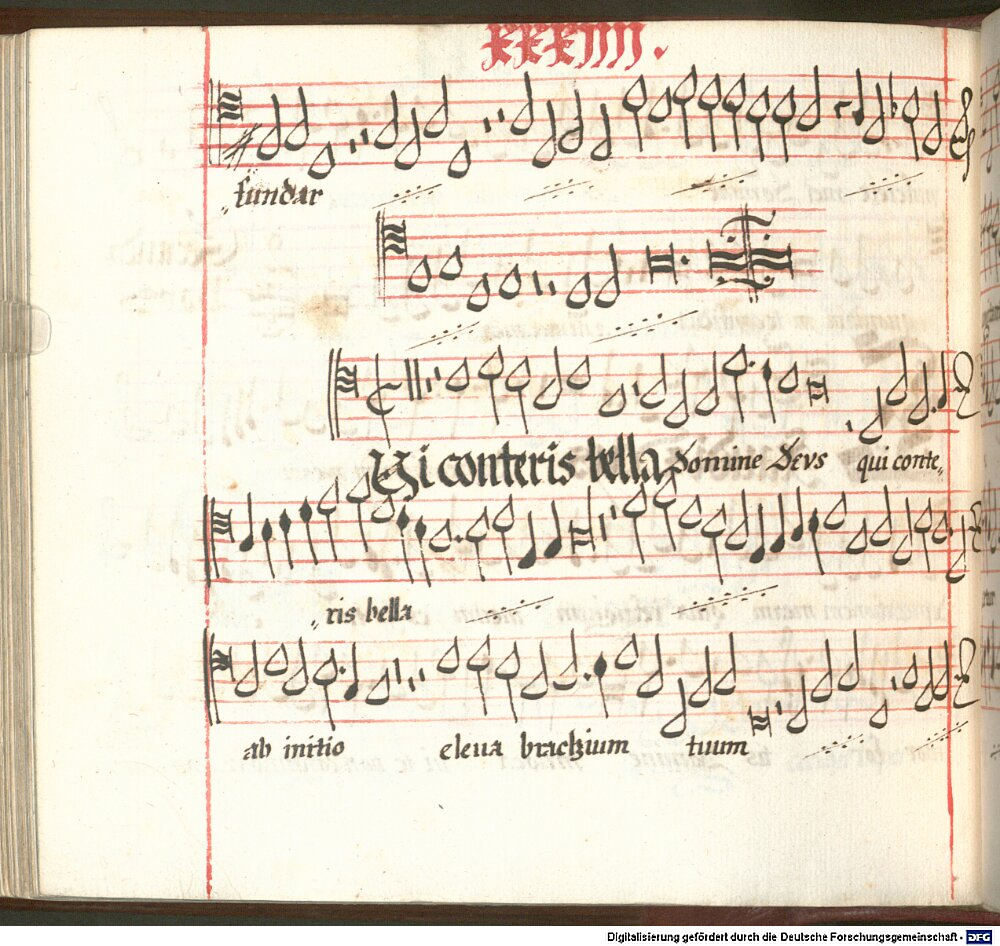 XXXIIII.
fundar
Qui conteris bella Domine Deus qui conte„
„ris bella
ab initio eleua brachium tuum
Digitalisierung gefördert durch die Deutsche Forschungsgemeinschaft - DFG